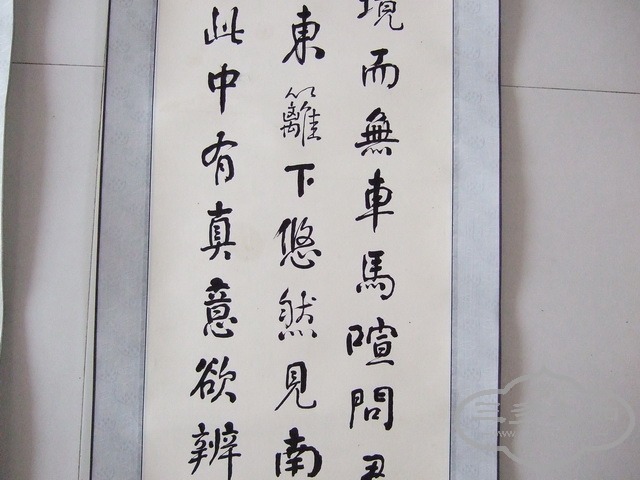 境而無車馬暄問君
東籬下悠然見南
此中有真意欲辨